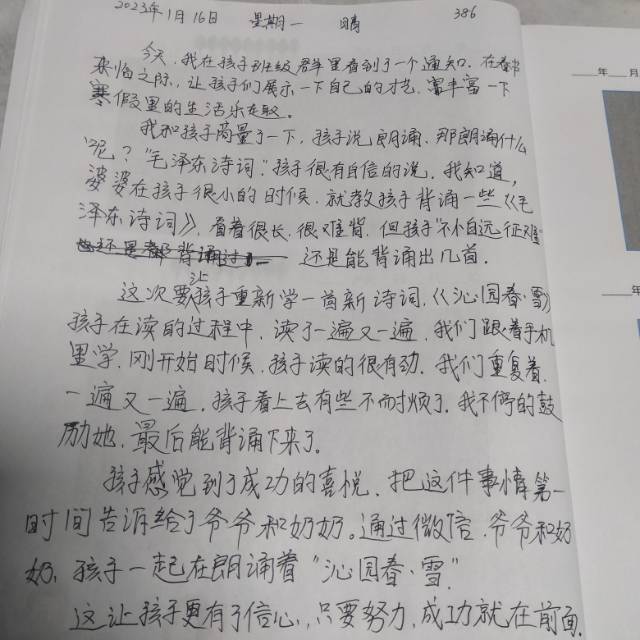 2023年1月16日 星期一 晴 386
今天,我在孩子班级群里看到了一个通知。在春节
来临之际,让孩子们展示一下自己的才艺,丰富一下
寒假里的生活乐趣。
我和孩子商量了一下,孩子说朗诵,那朗诵什么
呢?"毛泽东诗词".孩子很有自信的说,我知道,
婆婆在孩子很小的时候,就教孩子背诵一些《毛
泽东诗词》,看着很长,很难背,但孩子"不怕远征难"
还是能背诵出几首.
这次要让孩子重新学一首新诗词,《沁园春·雪》
孩子在读的过程中,读了一遍又一遍,我们跟着手机
里学,刚开始时候,孩子读的很有劲,我们重复着,
一遍又一遍,孩子看上去有些不耐烦了,我不停的鼓
励她,最后能背诵下来了。
孩子感觉到了成功的喜悦,把这件事情第一
时间告诉给了爷爷和奶奶。通过微信,爷爷和奶
奶,孩子一起在朗诵着"沁园春·雪"
这让孩子更有了信心,只要努力,成功就在前面.
年 月
年